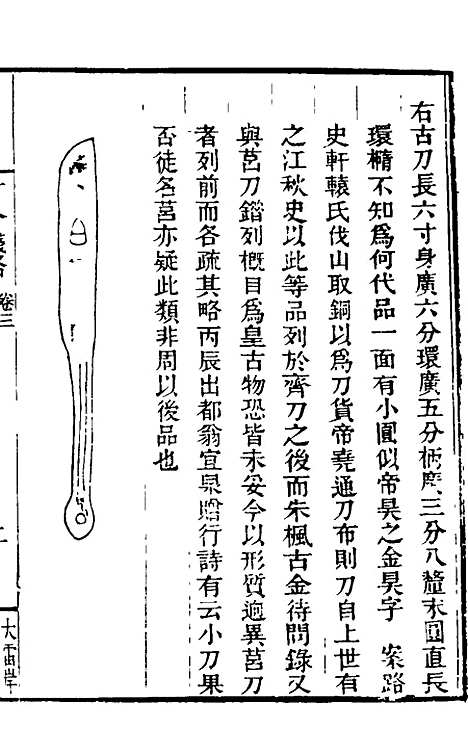 右古刀長六寸身廣六分環廣五分柄廣三分八釐末圓直長
環橢不知為何代品一面有小圓似帝昊之金昊字　案路
史軒轅氏伐山取銅以為刀貨帝堯通刀布則刀自上世有
之江秋史以此等品列於齊刀之後而朱楓古金待問錄又
與莒刀錯列概目為皇古物恐皆未妥今以形質逈異莒刀
者列前而各疏其略丙辰出都翁宜泉贈行詩有云小刀果
否徒名莒亦疑此類非周以後品也
卷三
大雷岸